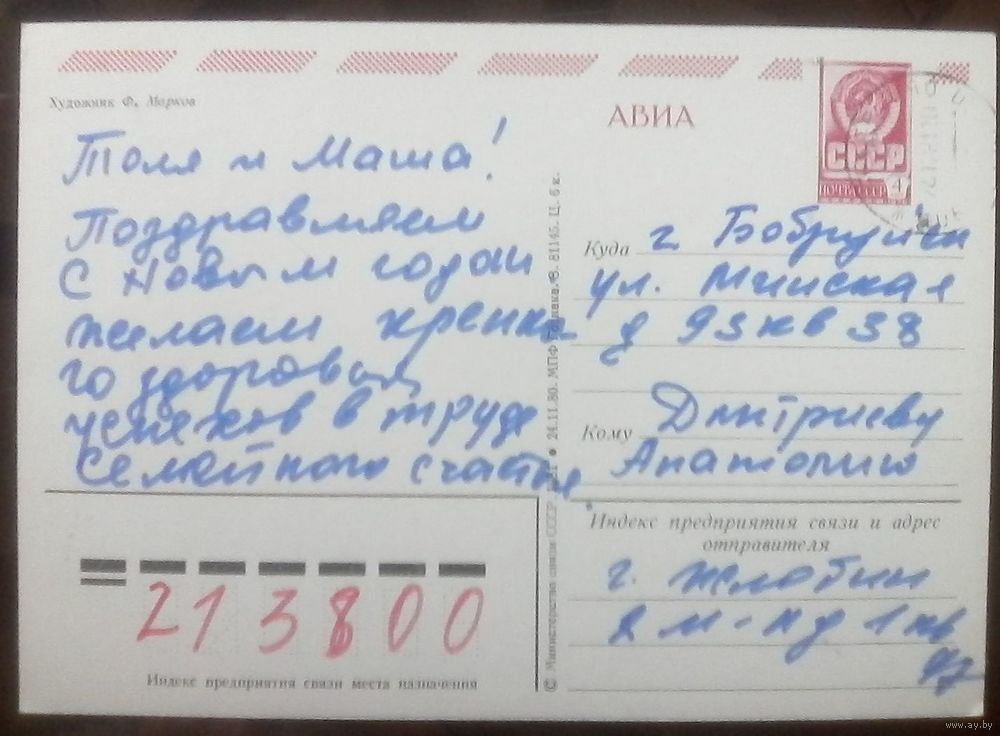 Художник Ф. Марков
АВИА
СССР
ПОЧТА СССР 4
Толя и Маша!
Поздравляем
С Новым годом
желаем крепко
го здоровья
успехов в труде
Семейного счастья.
Куда г. Бобруйск
ул. Минская
д 93 кв 38
Кому Дмитриеву
Анатолию
Индекс предприятия связи и адрес
отправителя
г. Жлобин
8 м-н д 1 кв
47
213800
Индекс предприятия связи места назначения
© Министерство связи СССР. ● 24.11.80. МПФ Гознака. З. 81145. Ц. 6 к.
www.ay.by